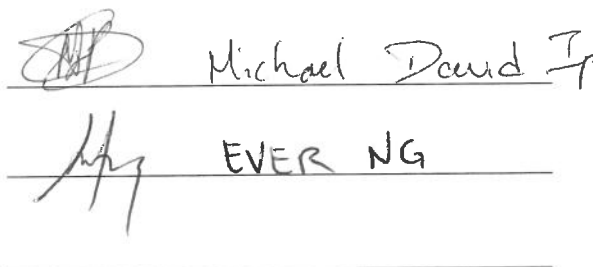 Michael David Ip
EVER NG